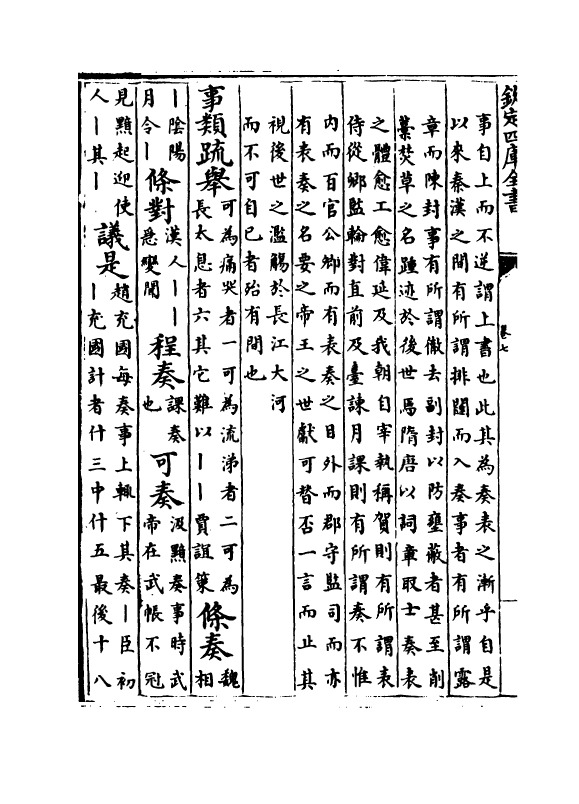 欽定四庫全書
卷七
事自上而不逆謂上書也此其為奏表之漸乎自是
以來秦漢之間有所謂排闥而入奏事者有所謂露
章而陳封事有所謂僘去副封以防壅蔽者甚至削
藁焚草之名踵迹於後世焉隋唐以詞章取士奏表
之體愈工愈偉延及我朝自宰執稱賀則有所謂表
侍從卿監輪對直前及臺諫月課則有所謂奏不惟
内而百官公卿而有表奏之目外而郡守監司而亦
有表奏之名要之帝王之世獻可替否一言而止其
視後世之濫觴於長江大河
而不可自已者殆有間也
事類疏舉可為痛哭者一可為流涕者二可為
長太息者六其它難以丨丨賈誼䇿條奏魏
相
丨陰陽
月令丨條對漢人丨丨
悉變聞程奏課奏
也可奏汲黯奏事時武
帝在武帳不冠
見黯起迎使
人丨其丨議是趙充國每奏事上輒下其奏丨臣初
丨充國計者什三中什五最後十八